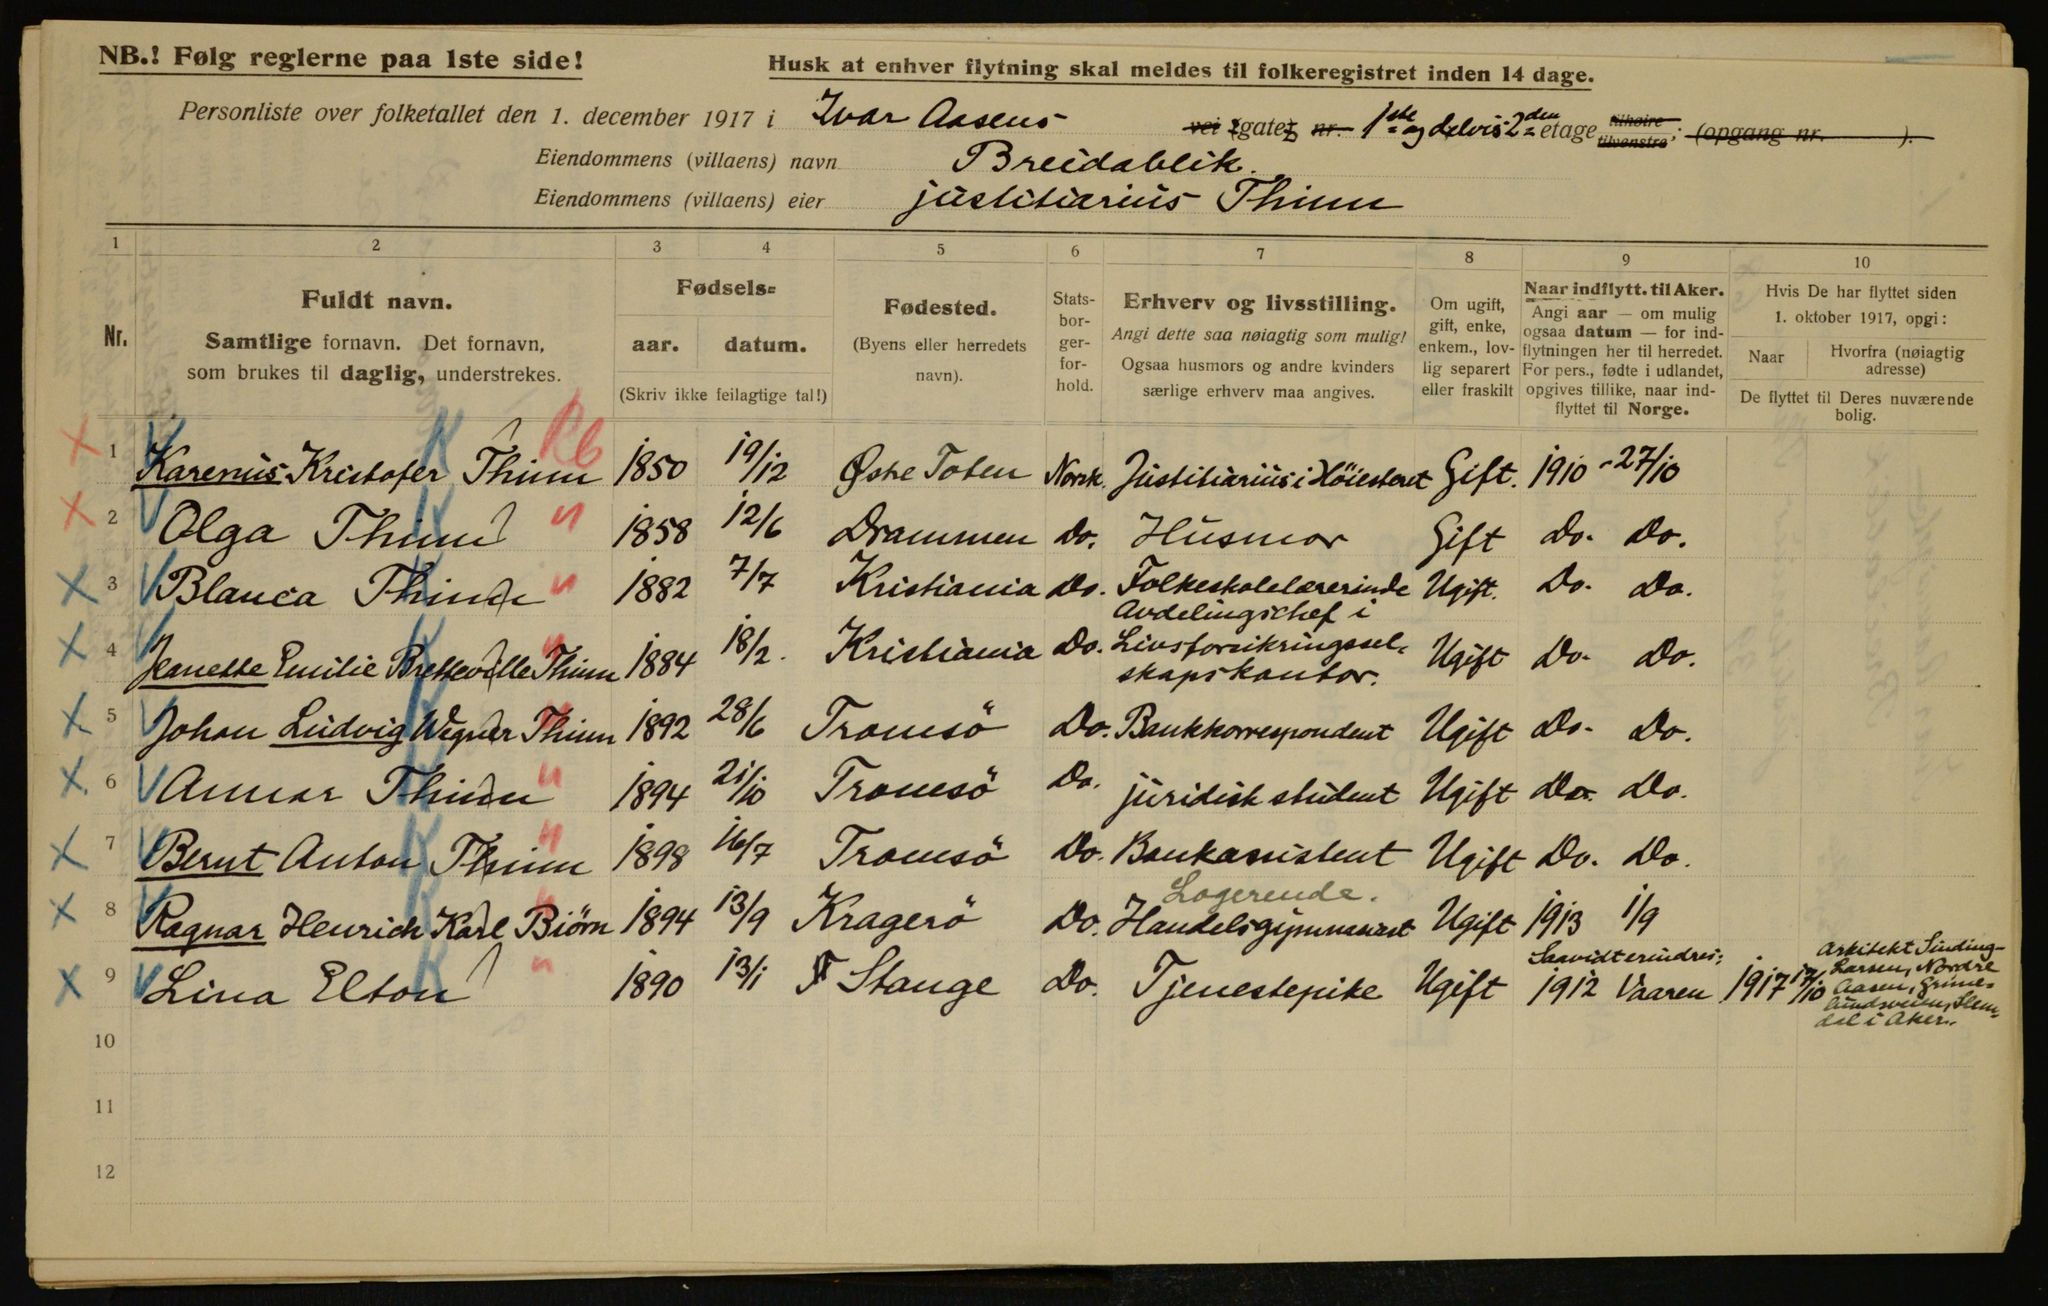 NB.! Følg reglerne paa 1ste side!
Husk at enhver flytning skal meldes til folkeregistret inden 14 dage.
Personliste over folketallet den 1. december 1917 i Ivar Aasens vei gate nr. 1ste og delvis 2den etage tilhøire tilvenstre; (opgang nr. ).
Eiendommens (villaens) navn Breidablik.
Eiendommens (villaens) eier justitiarius Thinn
1 2 3 4 5 6 7 8 9 10
Nr.
Fuldt navn.
Samtlige fornavn. Det fornavn,
som brukes til daglig, understrekes.
Fødsels-
aar. datum.
(Skriv ikke feilagtige tal!)
Fødested.
(Byens eller herredets
navn).
Stats-
bor-
ger-
for-
hold.
Erhverv og livsstilling.
Angi dette saa nøiagtig som mulig!
Ogsaa husmors og andre kvinders
særlige erhverv maa angives.
Om ugift,
gift, enke,
enkem., lov-
lig separert
eller fraskilt
Naar indflytt. til Aker.
Angi aar — om mulig
ogsaa datum — for ind-
flytningen her til herredet.
For pers., fødte i udlandet,
opgives tillike, naar ind-
flyttet til Norge.
Hvis De har flyttet siden
1. oktober 1917, opgi:
Naar Hvorfra (nøiagtig
adresse)
De flyttet til Deres nuværende
bolig.
1 Karenus Kristofer Thinn 1850 19/12 Østre Toten Norsk. Justitiarius i Höiesteret Gift. 1910 - 27/10
2 Olga Thinn 1858 12/6 Drammen Do. Husmor Gift Do. Do.
3 Blanca Thinn 1882 7/7 Kristiania Do. Folkeskolelærerinde Ugift. Do. Do.
4 Jeanette Emilie Bretteville Thinn 1884 18/2. Kristiania Do. Avdelingschef i
Livsforsikringssel-
skapskontor. Ugift Do. Do.
5 Johan Ludvig Wegner Thinn 1892 28/6 Tromsö Do. Bankkorrespondent Ugift Do. Do.
6 Annar Thinn 1894 21/10 Tromsö Do. juridisk student Ugift Do. Do.
7 Bernt Anton Thinn 1898 16/7 Tromsö Do. Bankassistent Ugift Do. Do.
Logerende.
8 Ragnar Henrich Karl Biörn 1894 13/9 Kragerö Do. Handelsgymnasiast Ugift 1913 1/9
Saavidt erindres:
9 Lina Elton 1890 13/1 Stange Do. Tjenestepike Ugift 1912 Vaaren 1917 17/10 Arkitekt Sinding-
Larsen, Nordre
Aasen, Grime-
lundsveien, Slem-
dal i Aker.
10
11
12